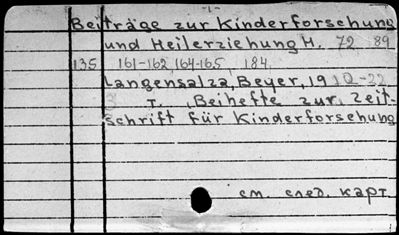 -1-
Beiträge zur Kinderforschung
und Heilerziehung H. 72 89
135 161-162, 164-165, 184
Langensalza, Beyer, 1910-22
T. Beihefte zur Zeit-
schrift für Kinderforschung
см. след. карт.